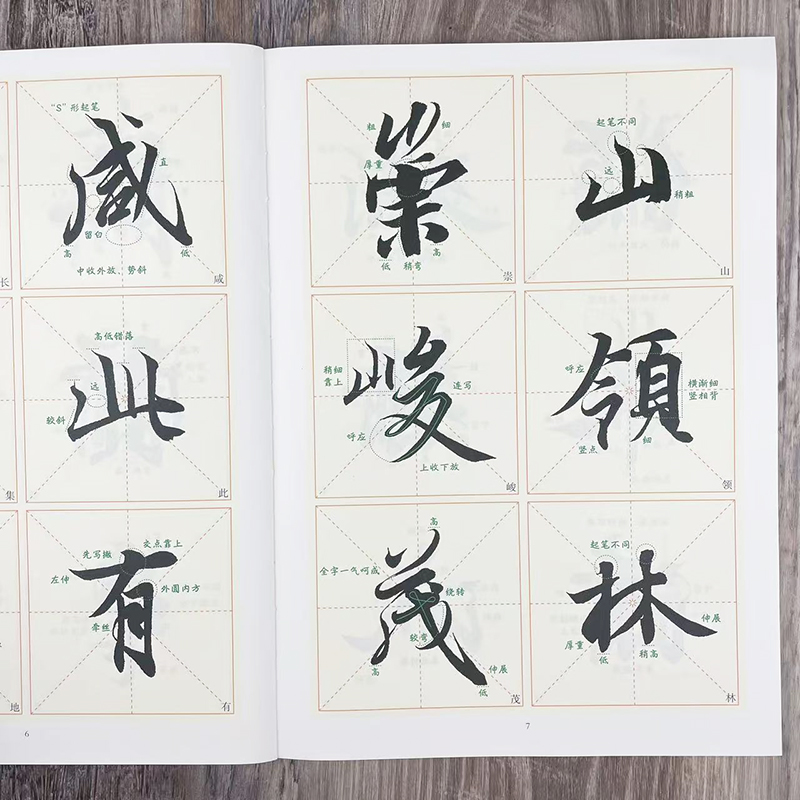 长
集
地
咸
"S"形起笔
直
留白
高
低
中收外放、势斜
咸
此
高低错落
远
较斜
此
有
先写撇
交点靠上
左伸
外圆内方
牵丝
有
6
崇
粗
细
厚重
高
低
稍弯
崇
山
起笔不同
远
稍粗
山
峻
稍细
靠上
连写
呼应
上收下放
峻
領
呼应
横渐细
竖相背
竖点
细
领
茂
高
全字一气呵成
绕转
较弯
高
伸展
低
茂
林
起笔不同
伸展
厚重
低
稍高
林
7